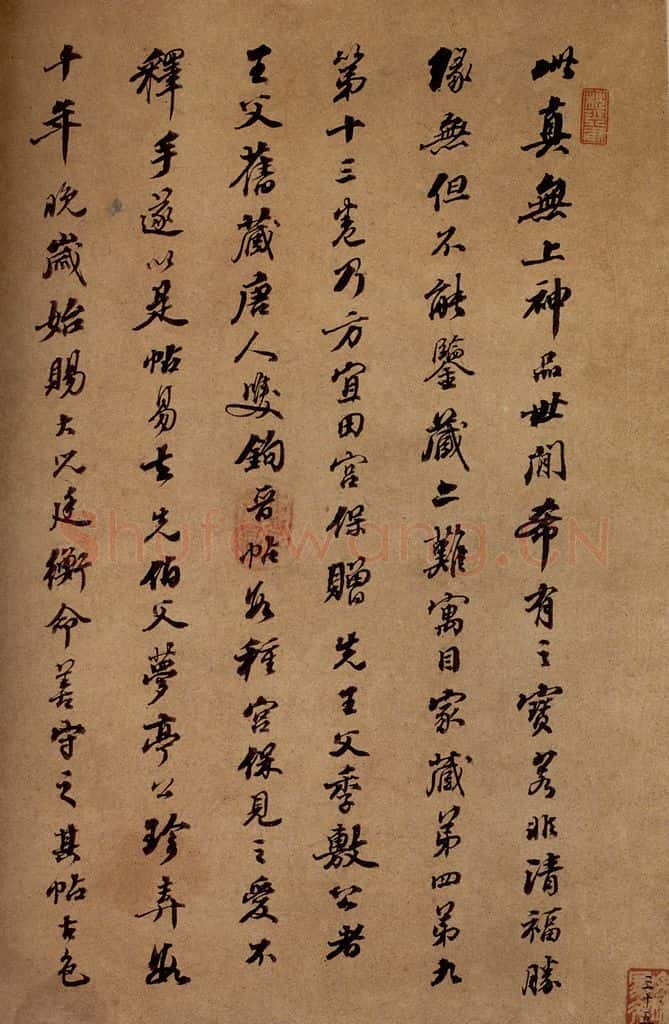 此真無上神品世間希有之寶若非清福勝
緣無但不能鑒藏亦難寓目家藏第四第九
第十三卷乃方宜田宮保贈先王父季敷公者
王父舊藏唐人雙鉤晉帖數種宮保見之愛不
釋手遂以是帖易去先伯父夢亭公珍弆數
十年晚歲始賜大兄廷衡命善守之其帖古色
三十五
Shufawang.CN